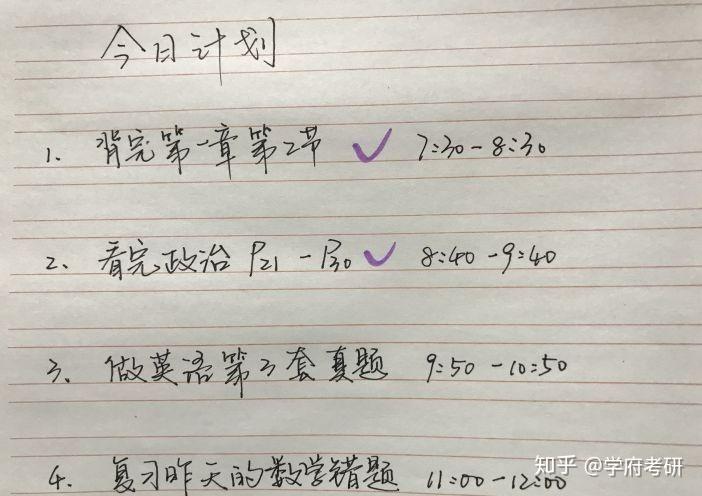 今日计划
1、背完第一章第2节 ✓ 7:30-8:30
2、看完政治 P21-P30 ✓ 8:40-9:40
3、做英语第3套真题 9:50-10:50
4、复习昨天的数学错题 11:00-12:00
知乎 @学府考研